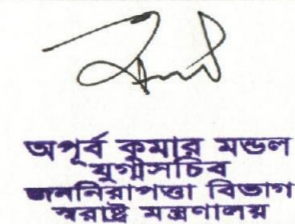 অপূর্ব কুমার মন্ডল
যুগ্মসচিব
জননিরাপত্তা বিভাগ
স্বরাষ্ট্র মন্ত্রণালয়